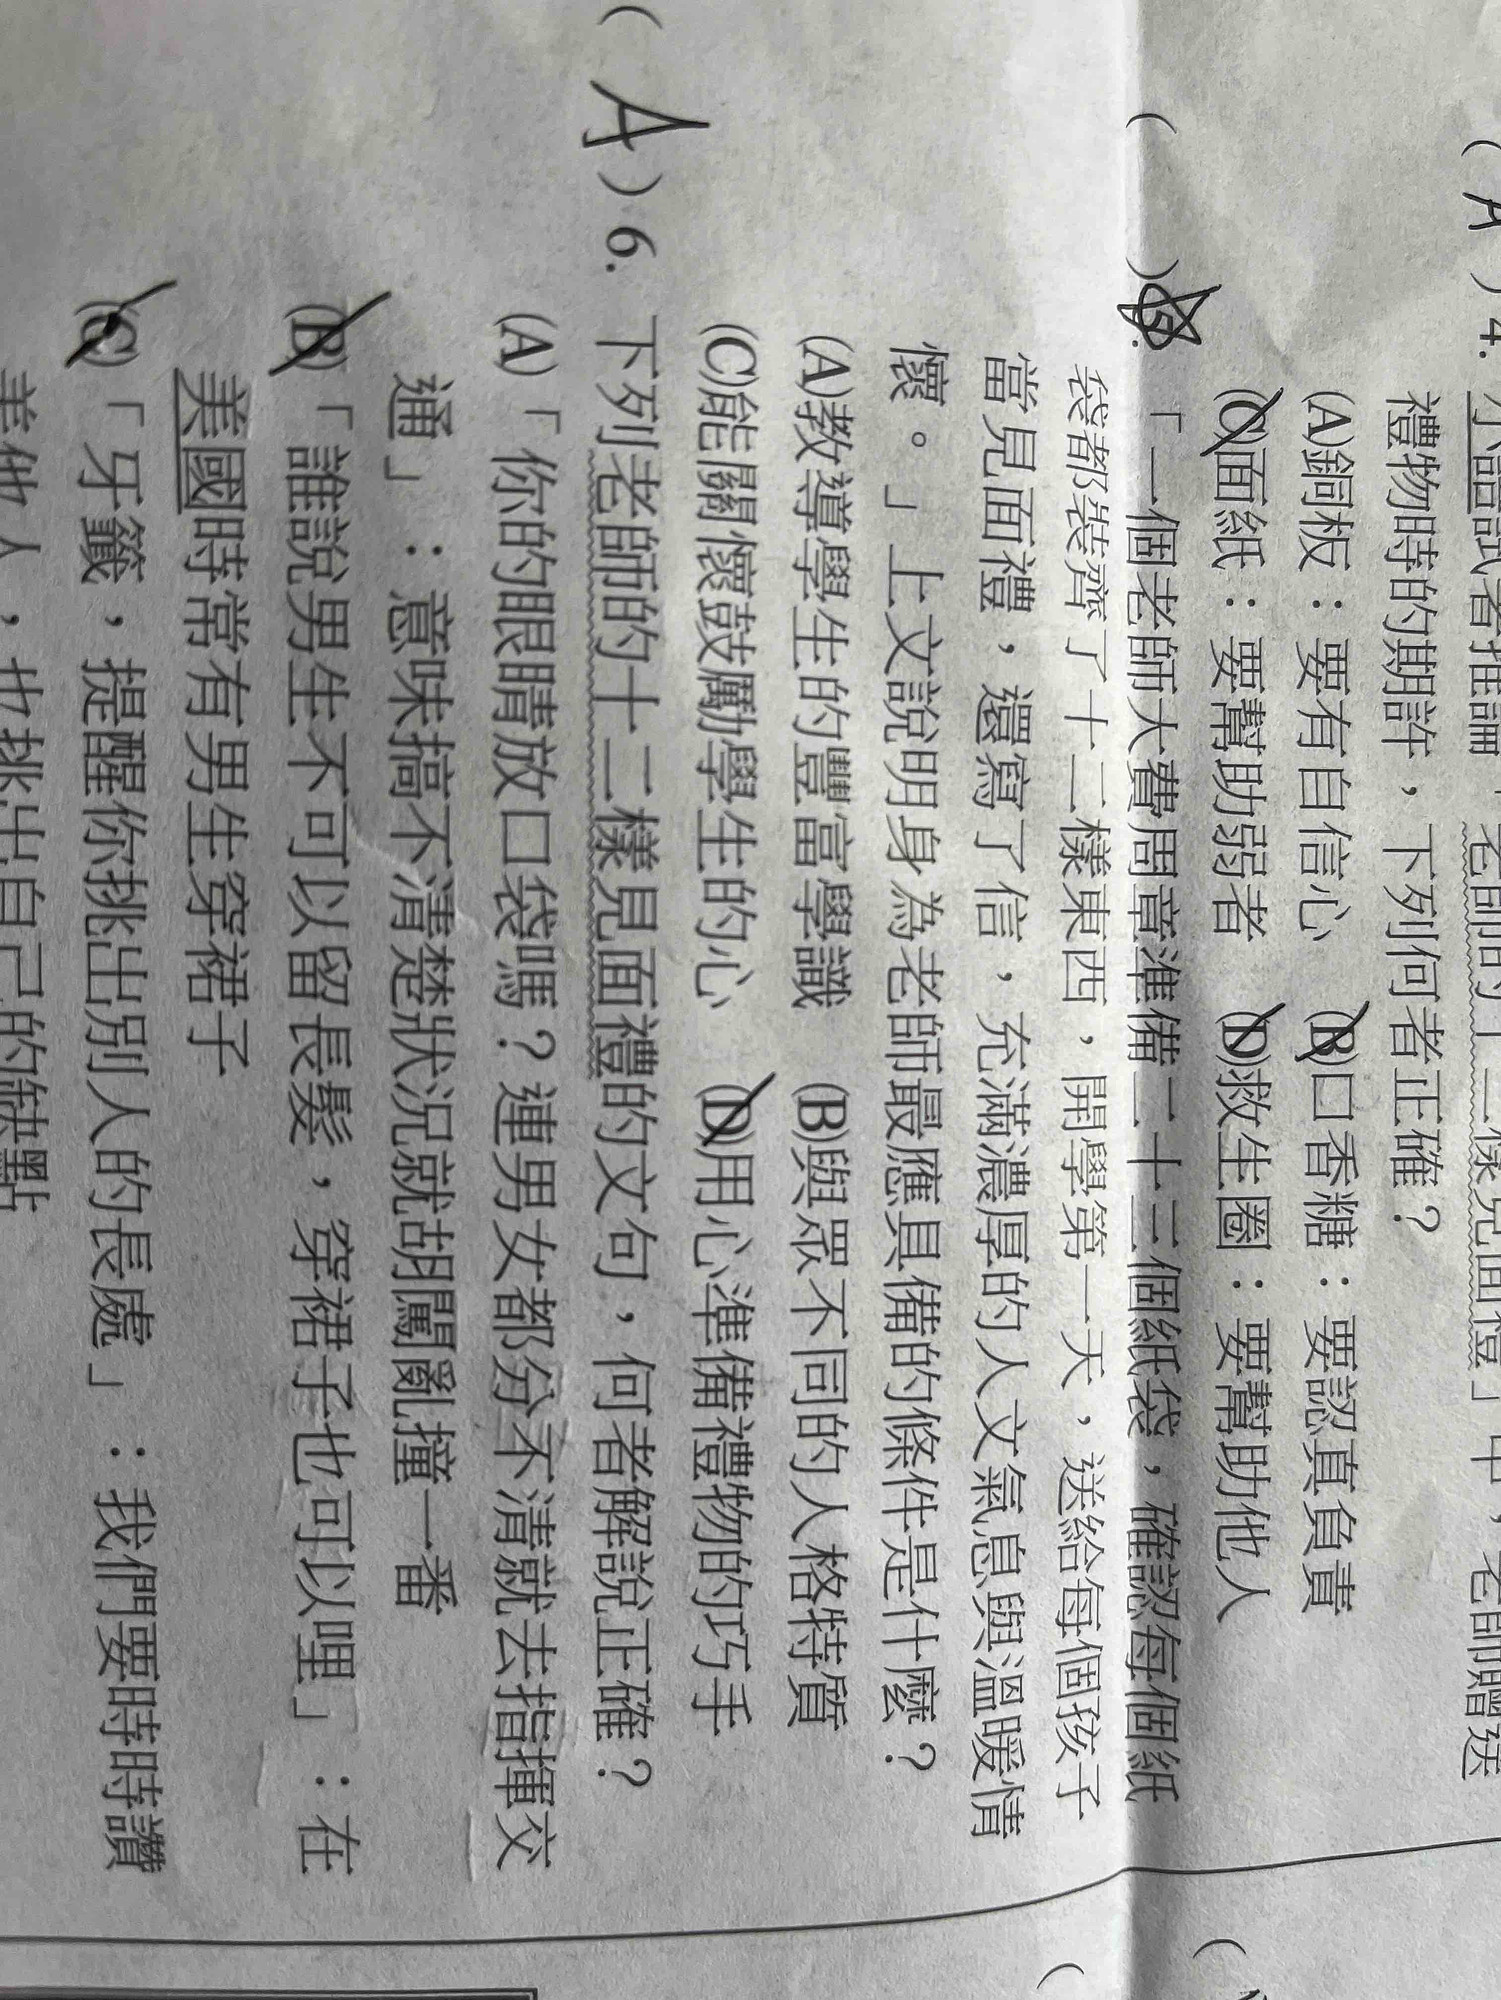 ( A ) 4. 小語試著推論「老師的十二樣見面禮」中，老師贈送
禮物時的期許，下列何者正確？
(A)銅板：要有自信心 (B)口香糖：要認真負責
(C)面紙：要幫助弱者 (D)救生圈：要幫助他人
( ) 5. 「一個老師大費周章準備二十三個紙袋，確認每個紙
袋都裝齊了十二樣東西，開學第一天，送給每個孩子
當見面禮，還寫了信，充滿濃厚的人文氣息與溫暖情
懷。」上文說明身為老師最應具備的條件是什麼？
(A)教導學生的豐富學識 (B)與眾不同的人格特質
(C)能關懷鼓勵學生的心 (D)用心準備禮物的巧手
( A ) 6. 下列老師的十二樣見面禮的文句，何者解說正確？
(A)「你的眼睛放口袋嗎？連男女都分不清就去指揮交
通」：意味搞不清楚狀況就胡闖亂撞一番
(B)「誰說男生不可以留長髮，穿裙子也可以哩」：在
美國時常有男生穿裙子
(C)「牙籤，提醒你挑出別人的長處」：我們要時時讚
美他人，也挑出自己的缺點